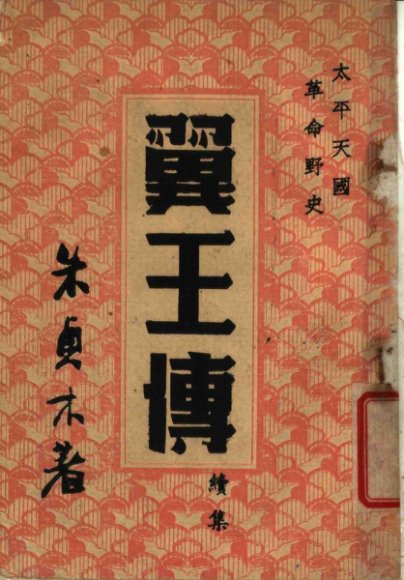 太平天國
革命野史
翼王傳
續集
朱貞木著